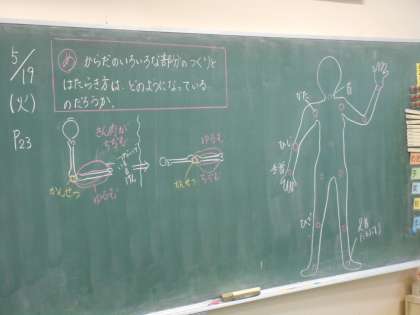 5/19
(火)
P23
め からだのいろいろな部分のつくりと
はたらき方は、どのようになっている
のだろうか。
きん肉が
ちぢむ
かんせつ
ゆるむ
ゆるむ
かんせつ
ちぢむ
かた
首
ひじ
手首
ひざ
足首